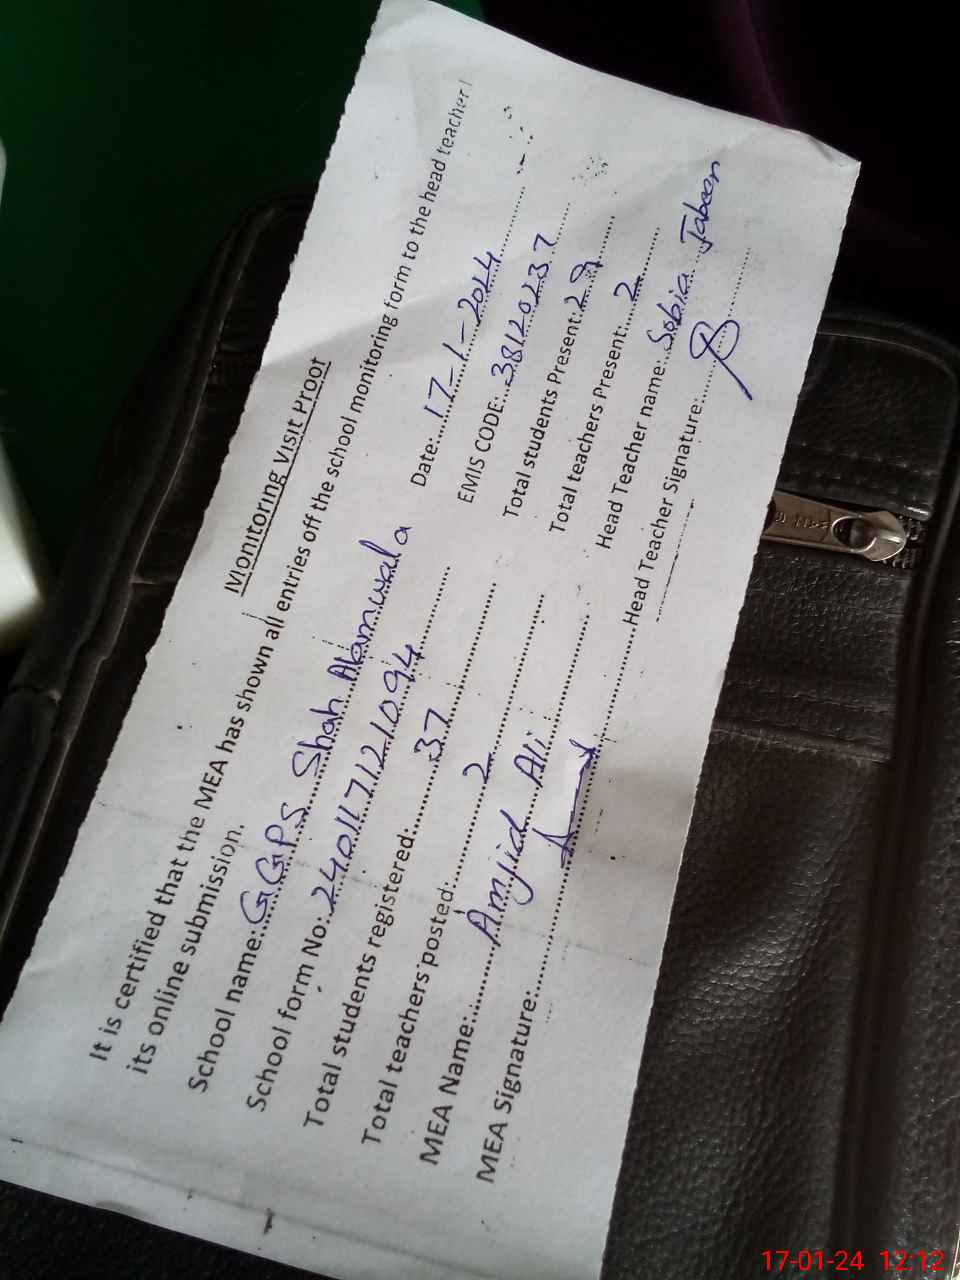 Monitoring Visit Proof
It is certified that the MEA has shown all entries off the school monitoring form to the head teacher
its online submission.
School name: GGPS Shah Alamwala
Date: 17-1-2024
School form No: 2401171121094
EMIS CODE: 38120237
Total students registered: 37
Total students Present: 29
Total teachers posted: 2
Total teachers Present: 2
MEA Name: Amjid Ali
Head Teacher name: Sobia Jabeen
MEA Signature:
Head Teacher Signature:
17-01-24 12:12